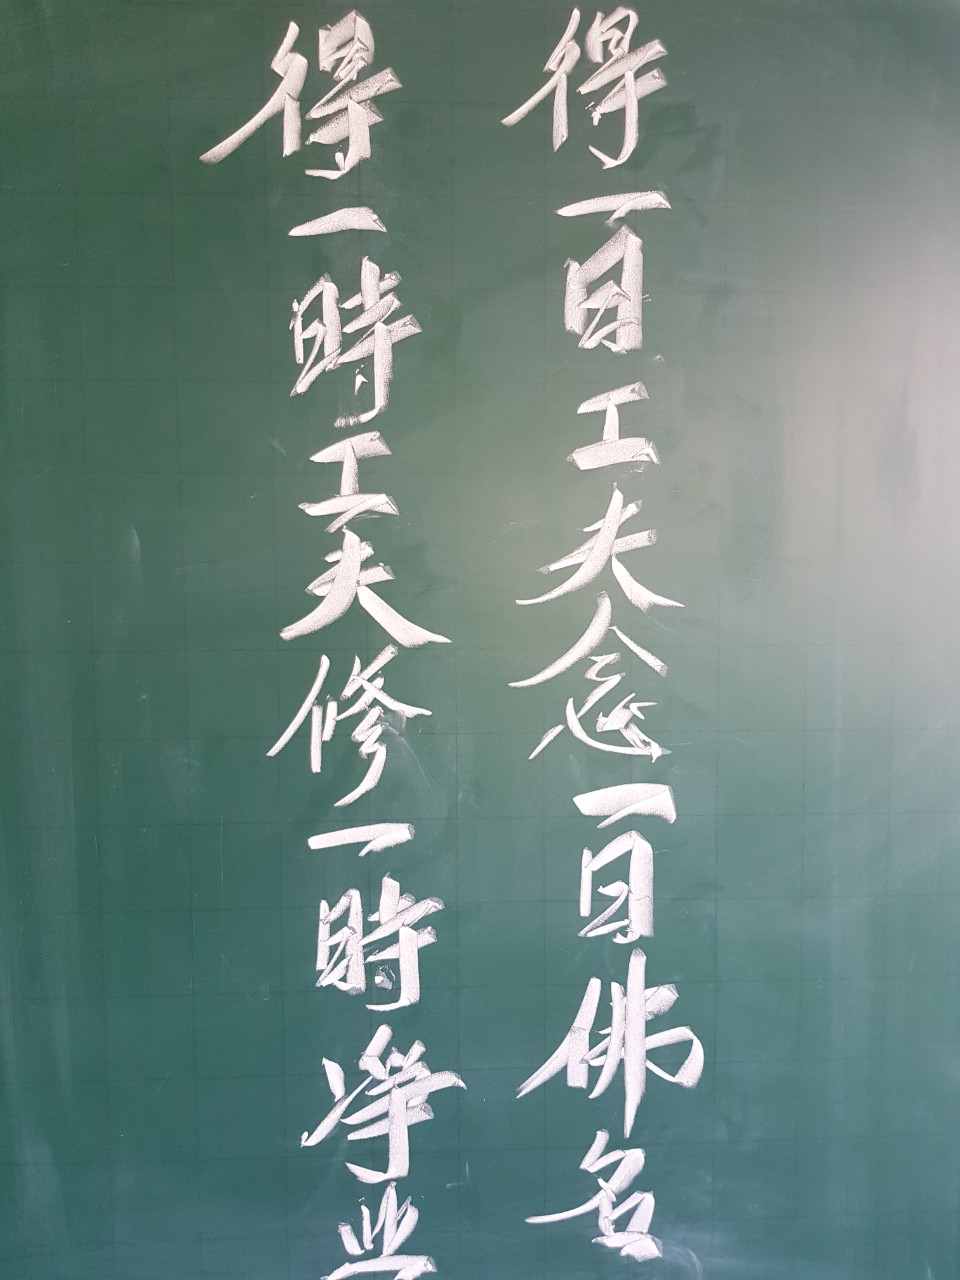 得一日工夫念一日佛名
得一時工夫修一時凈業